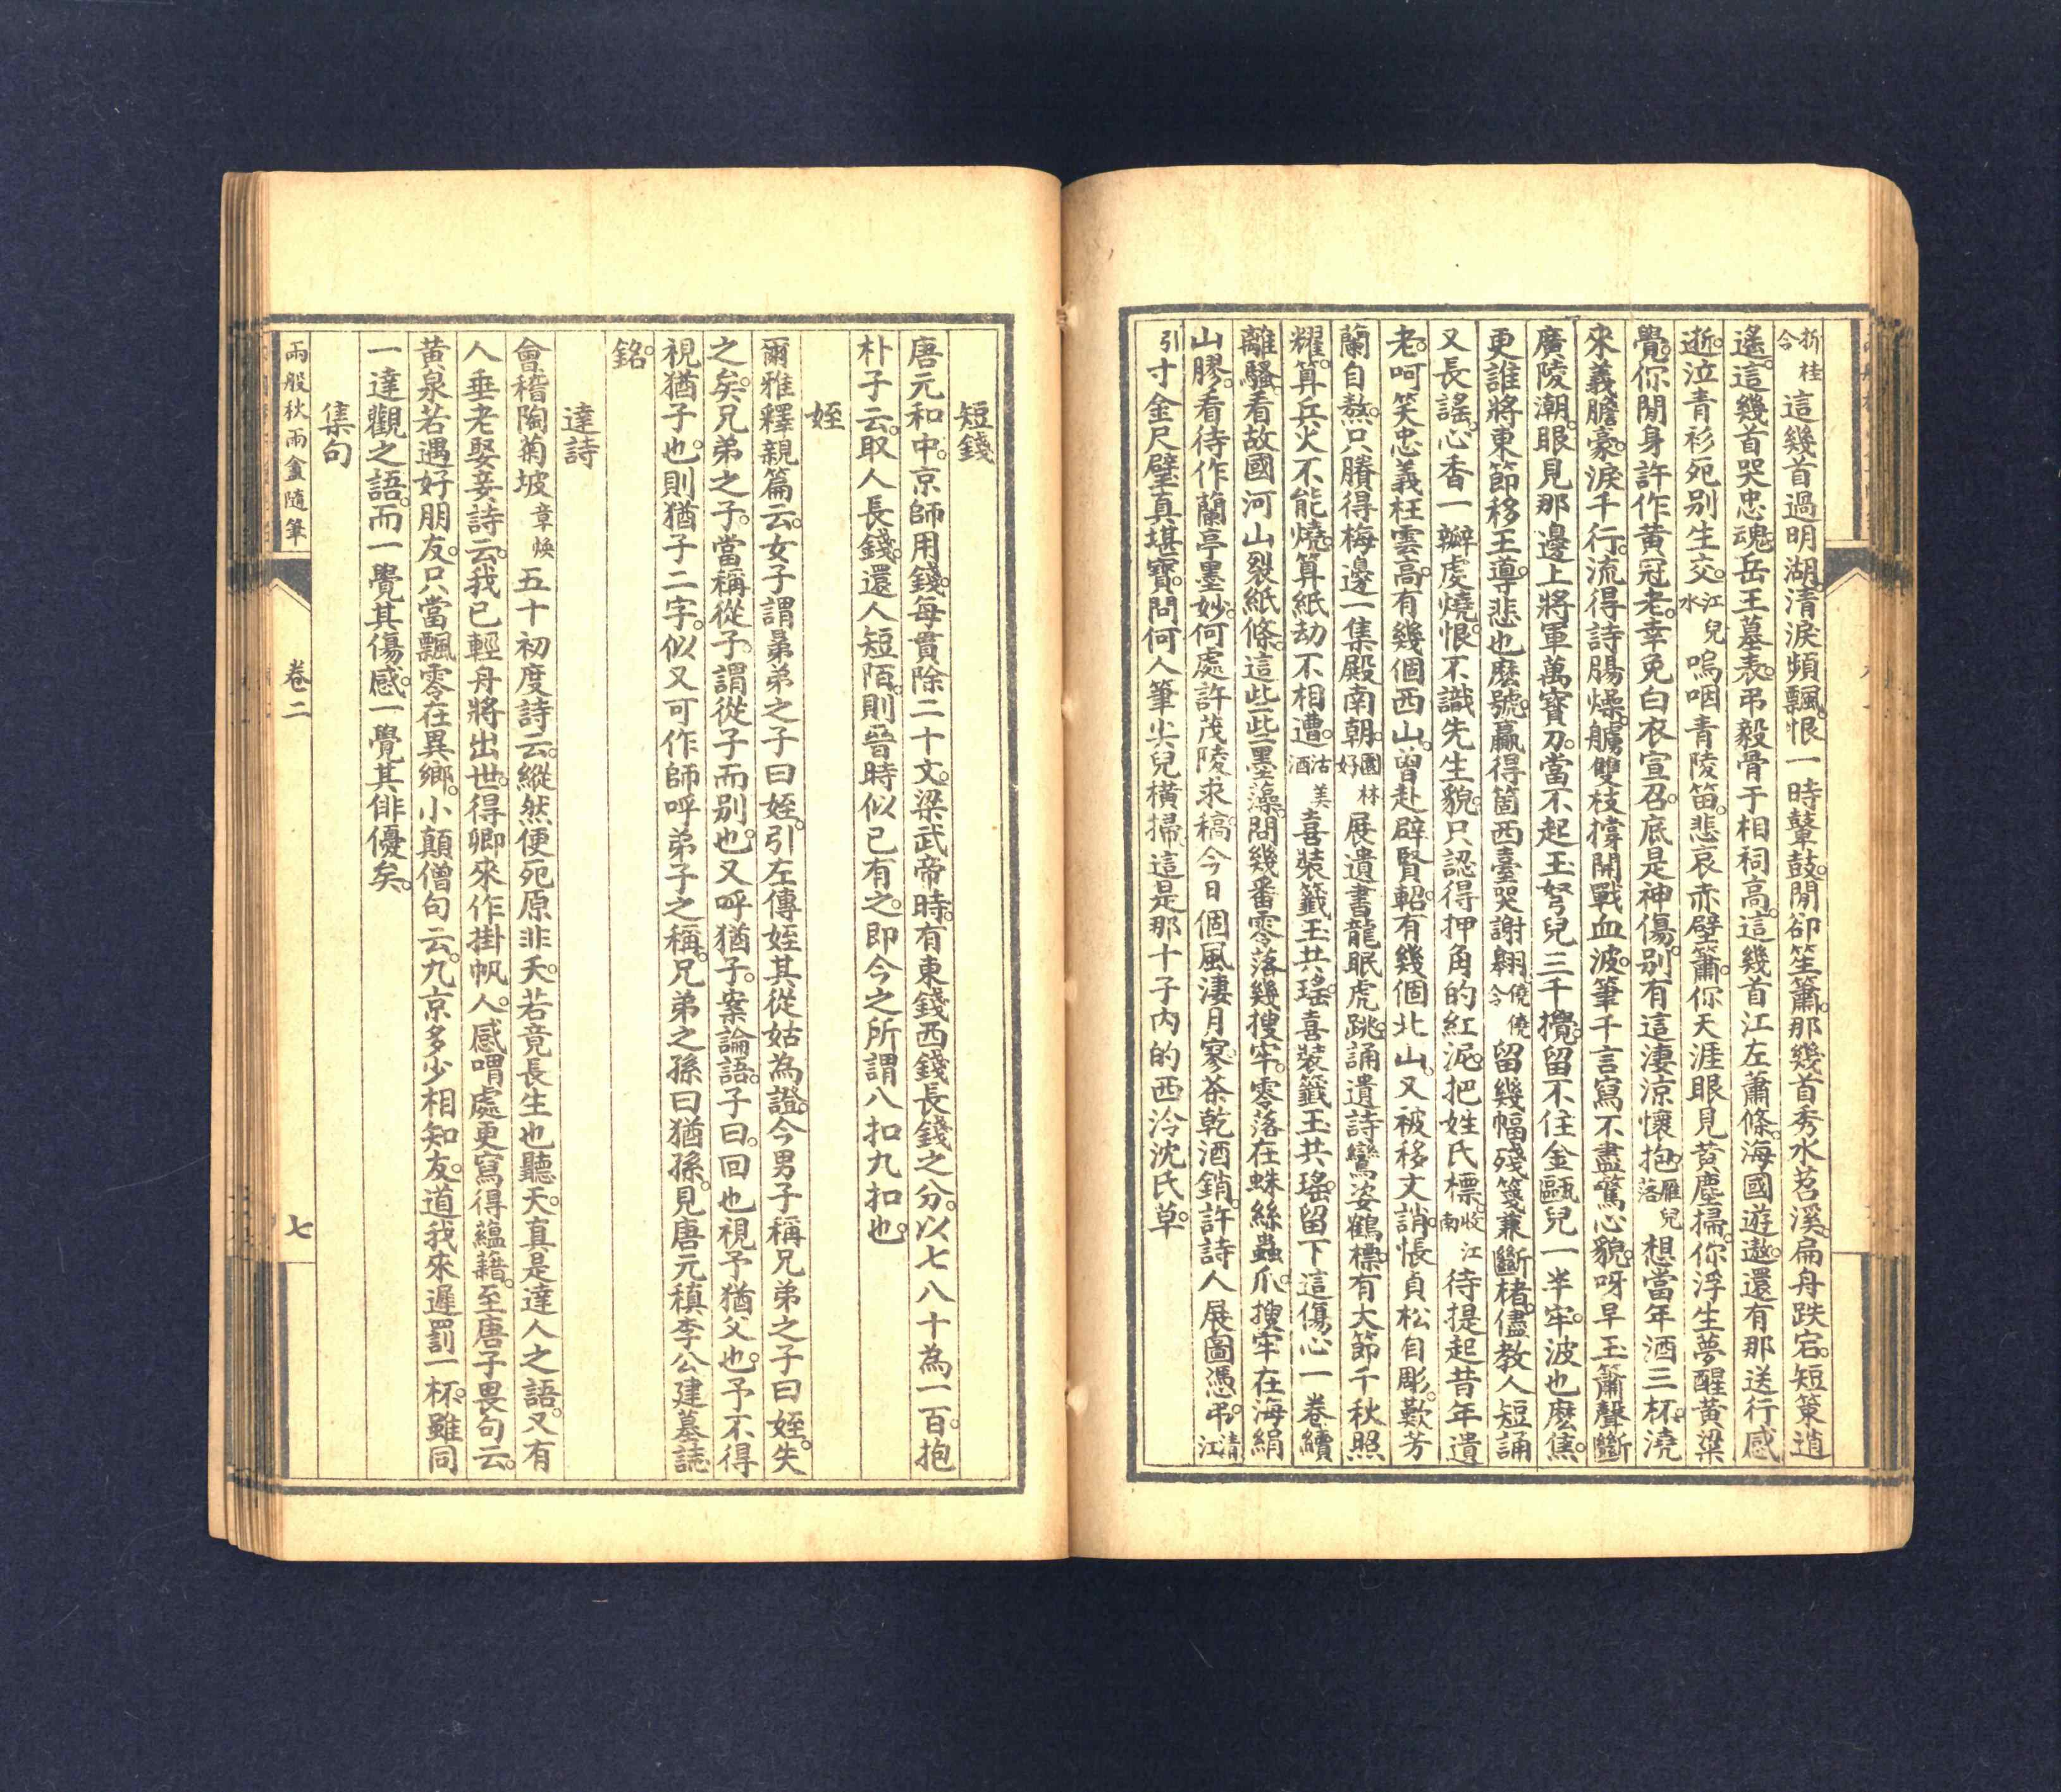 折桂令 這幾首過明湖。清淚頻飄。恨一時鼙鼓。閒卻笙簫。那幾首秀水苕溪。扁舟跌宕。短策逍
遙。這幾首哭忠魂。岳王墓表。弔毅骨于相祠高。這幾首江左蕭條。海國遊遨。還有那送行感
逝。泣青衫死别生交。江兒水 嗚咽青陵笛。悲哀赤壁簫。你天涯眼見黃塵掃。你浮生夢醒黃粱
覺。你閒身許作黃冠老。幸免白衣宣召。底是神傷。别有這淒涼懷抱。雁兒落 想當年酒三杯。澆
來義膽豪。淚千行。流得詩腸燥。艣雙枝撐開戰血波。筆千言寫不盡驚心貌。呀早玉簫聲斷
廣陵潮。眼見那邊上將軍萬寶刀。當不起玉弩兒三千攪。留不住金甌兒一半牢。波也麽焦。
更誰將東節移王導。悲也麽號。贏得箇西臺哭謝翱。僥僥令 留幾幅殘箋兼斷楮。儘教人短誦
又長謠。心香一瓣虔燒。恨不識先生貌。只認得押角的紅泥。把姓氏標。收江南 待提起昔年遺
老。呵笑忠義枉雲高。有幾個西山。曾赴辟賢軺。有幾個北山。又被移文誚。悵貞松自彫。歎芳
蘭自熬。只賸得梅邊一集殿南朝。園林好 展遺書龍眠虎跳。誦遺詩鸞姿鶴標。有大節千秋照
耀。算兵火不能燒。算紙劫不相遭。沽美酒 喜裝籤玉共瑤。喜裝籤玉共瑤。留下這傷心一卷續
離騷。看故國河山裂紙條。這些些墨藻。問幾番零落幾搜牢。零落在蛛絲蟲爪。搜牢在海絹
山膠。看待作蘭亭墨妙。何處許茂陵求稿。今日個風淒月寥。茶乾酒銷。許詩人展圖憑弔。清江
引 寸金尺璧真堪寶。問何人筆尖兒橫掃。這是那十子内的西泠沈氏草。
短錢
唐元和中。京師用錢。每貫除二十文。梁武帝時。有東錢西錢長錢之分。以七八十為一百。抱
朴子云。取人長錢。還人短陌。則晉時似已有之。即今之所謂八扣九扣也。
姪
爾雅釋親篇云。女子謂晜弟之子曰姪。引左傳姪其從姑為證。今男子稱兄弟之子曰姪。失
之矣。兄弟之子。當稱從子。謂從子而别也。又呼猶子。案論語。子曰。回也視予猶父也。予不得
視猶子也。則猶子二字。似又可作師呼弟子之稱。兄弟之孫曰猶孫。見唐元稹李公建墓誌
銘。
達詩
會稽陶菊坡章煥五十初度詩云。縱然便死原非夭。若竟長生也聽天。真是達人之語。又有
人垂老娶妾。詩云。我已輕舟將出世。得卿來作掛帆人。感喟處更寫得蘊藉。至唐子畏句云。
黃泉若遇好朋友。只當飄零在異鄉。小顛僧句云。九京多少相知友。道我來遲罰一杯。雖同
一達觀之語。而一覺其傷感。一覺其俳優矣。
集句
兩般秋雨盦隨筆 卷二 七